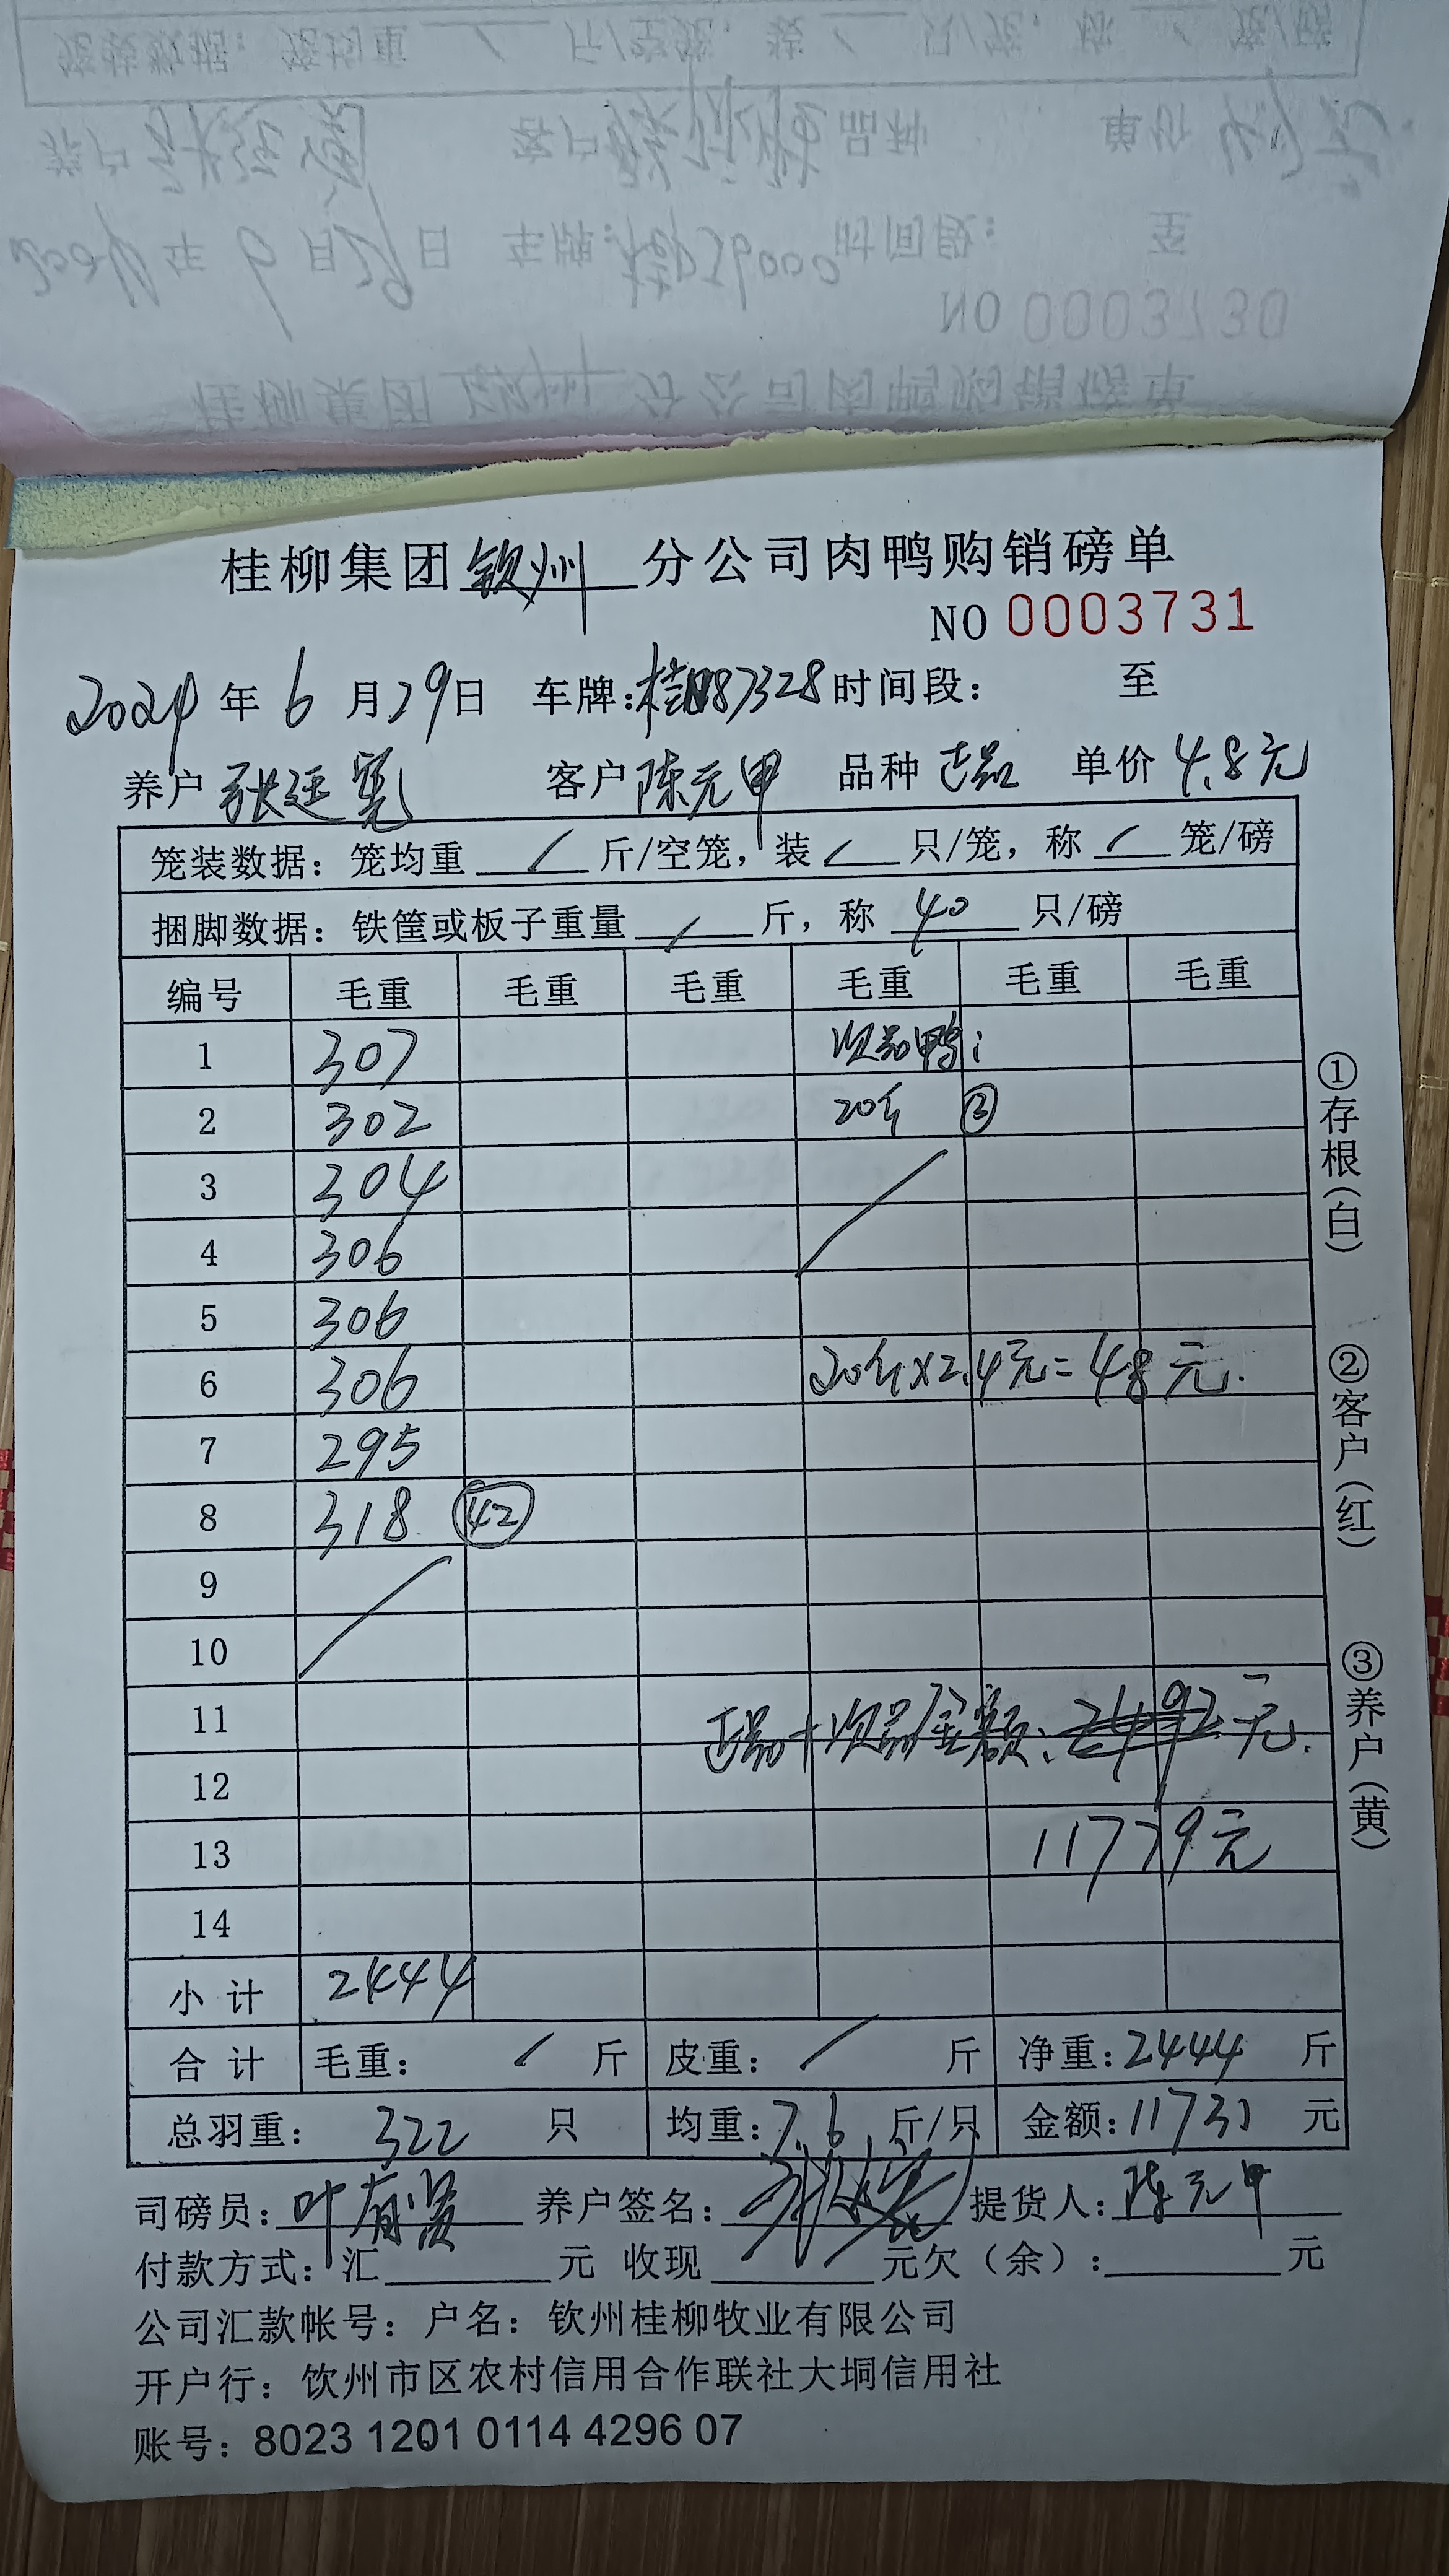 桂柳集团 钦州 分公司肉鸭购销磅单
NO 0003731
2024 年 6 月 29 日 车牌: 时间段: 至
养户 张廷宽 客户 陈元甲 品种 正品 单价 4.8元
笼装数据: 笼均重 / 斤/空笼, 装 / 只/笼, 称 / 笼/磅
捆脚数据: 铁筐或板子重量 / 斤, 称 40 只/磅
编号 毛重 毛重 毛重 毛重 毛重 毛重
1 307 次品鸭:
2 302 20斤 ③
3 304
4 306
5 306
6 306 20斤×2.4元=48元.
7 295
8 318 42
9
10
11 正品+次品金额: 2492元.
12
13 11779元
14
小计 2444
合计 毛重: / 斤 皮重: / 斤 净重: 2444 斤
总羽重: 322 只 均重: 7.6 斤/只 金额: 11731 元
司磅员: 叶有贤 养户签名: 提货人: 陈元甲
付款方式: 汇 元 收现 元欠(余): 元
公司汇款帐号: 户名: 钦州桂柳牧业有限公司
开户行: 钦州市区农村信用合作联社大垌信用社
账号: 8023 1201 0114 4296 07
①存根(白)
②客户(红)
③养户(黄)